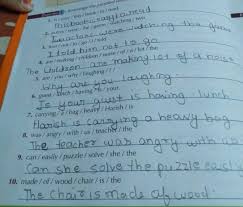 This book is easy to read
Teachers were watching the game
I told him not to go
4. are / making / children / noise / of / a / lot / the
The Children are making lot of a noise
5. are / you / why / laughing / ?
Why are you laughing
6. guest / lunch / having / is / your
Is your guest is having lunch
7. carrying / a / bag / heavy / Harish / is
Harish is carrying a heavy bag
8. was / angry / with / us / teacher / the
The teacher was angry with us
9. can / easily / puzzle / solve / she / the
Can she solve the puzzle easily
10. made / of / wood / chair / is / the
The chair is made of wood.